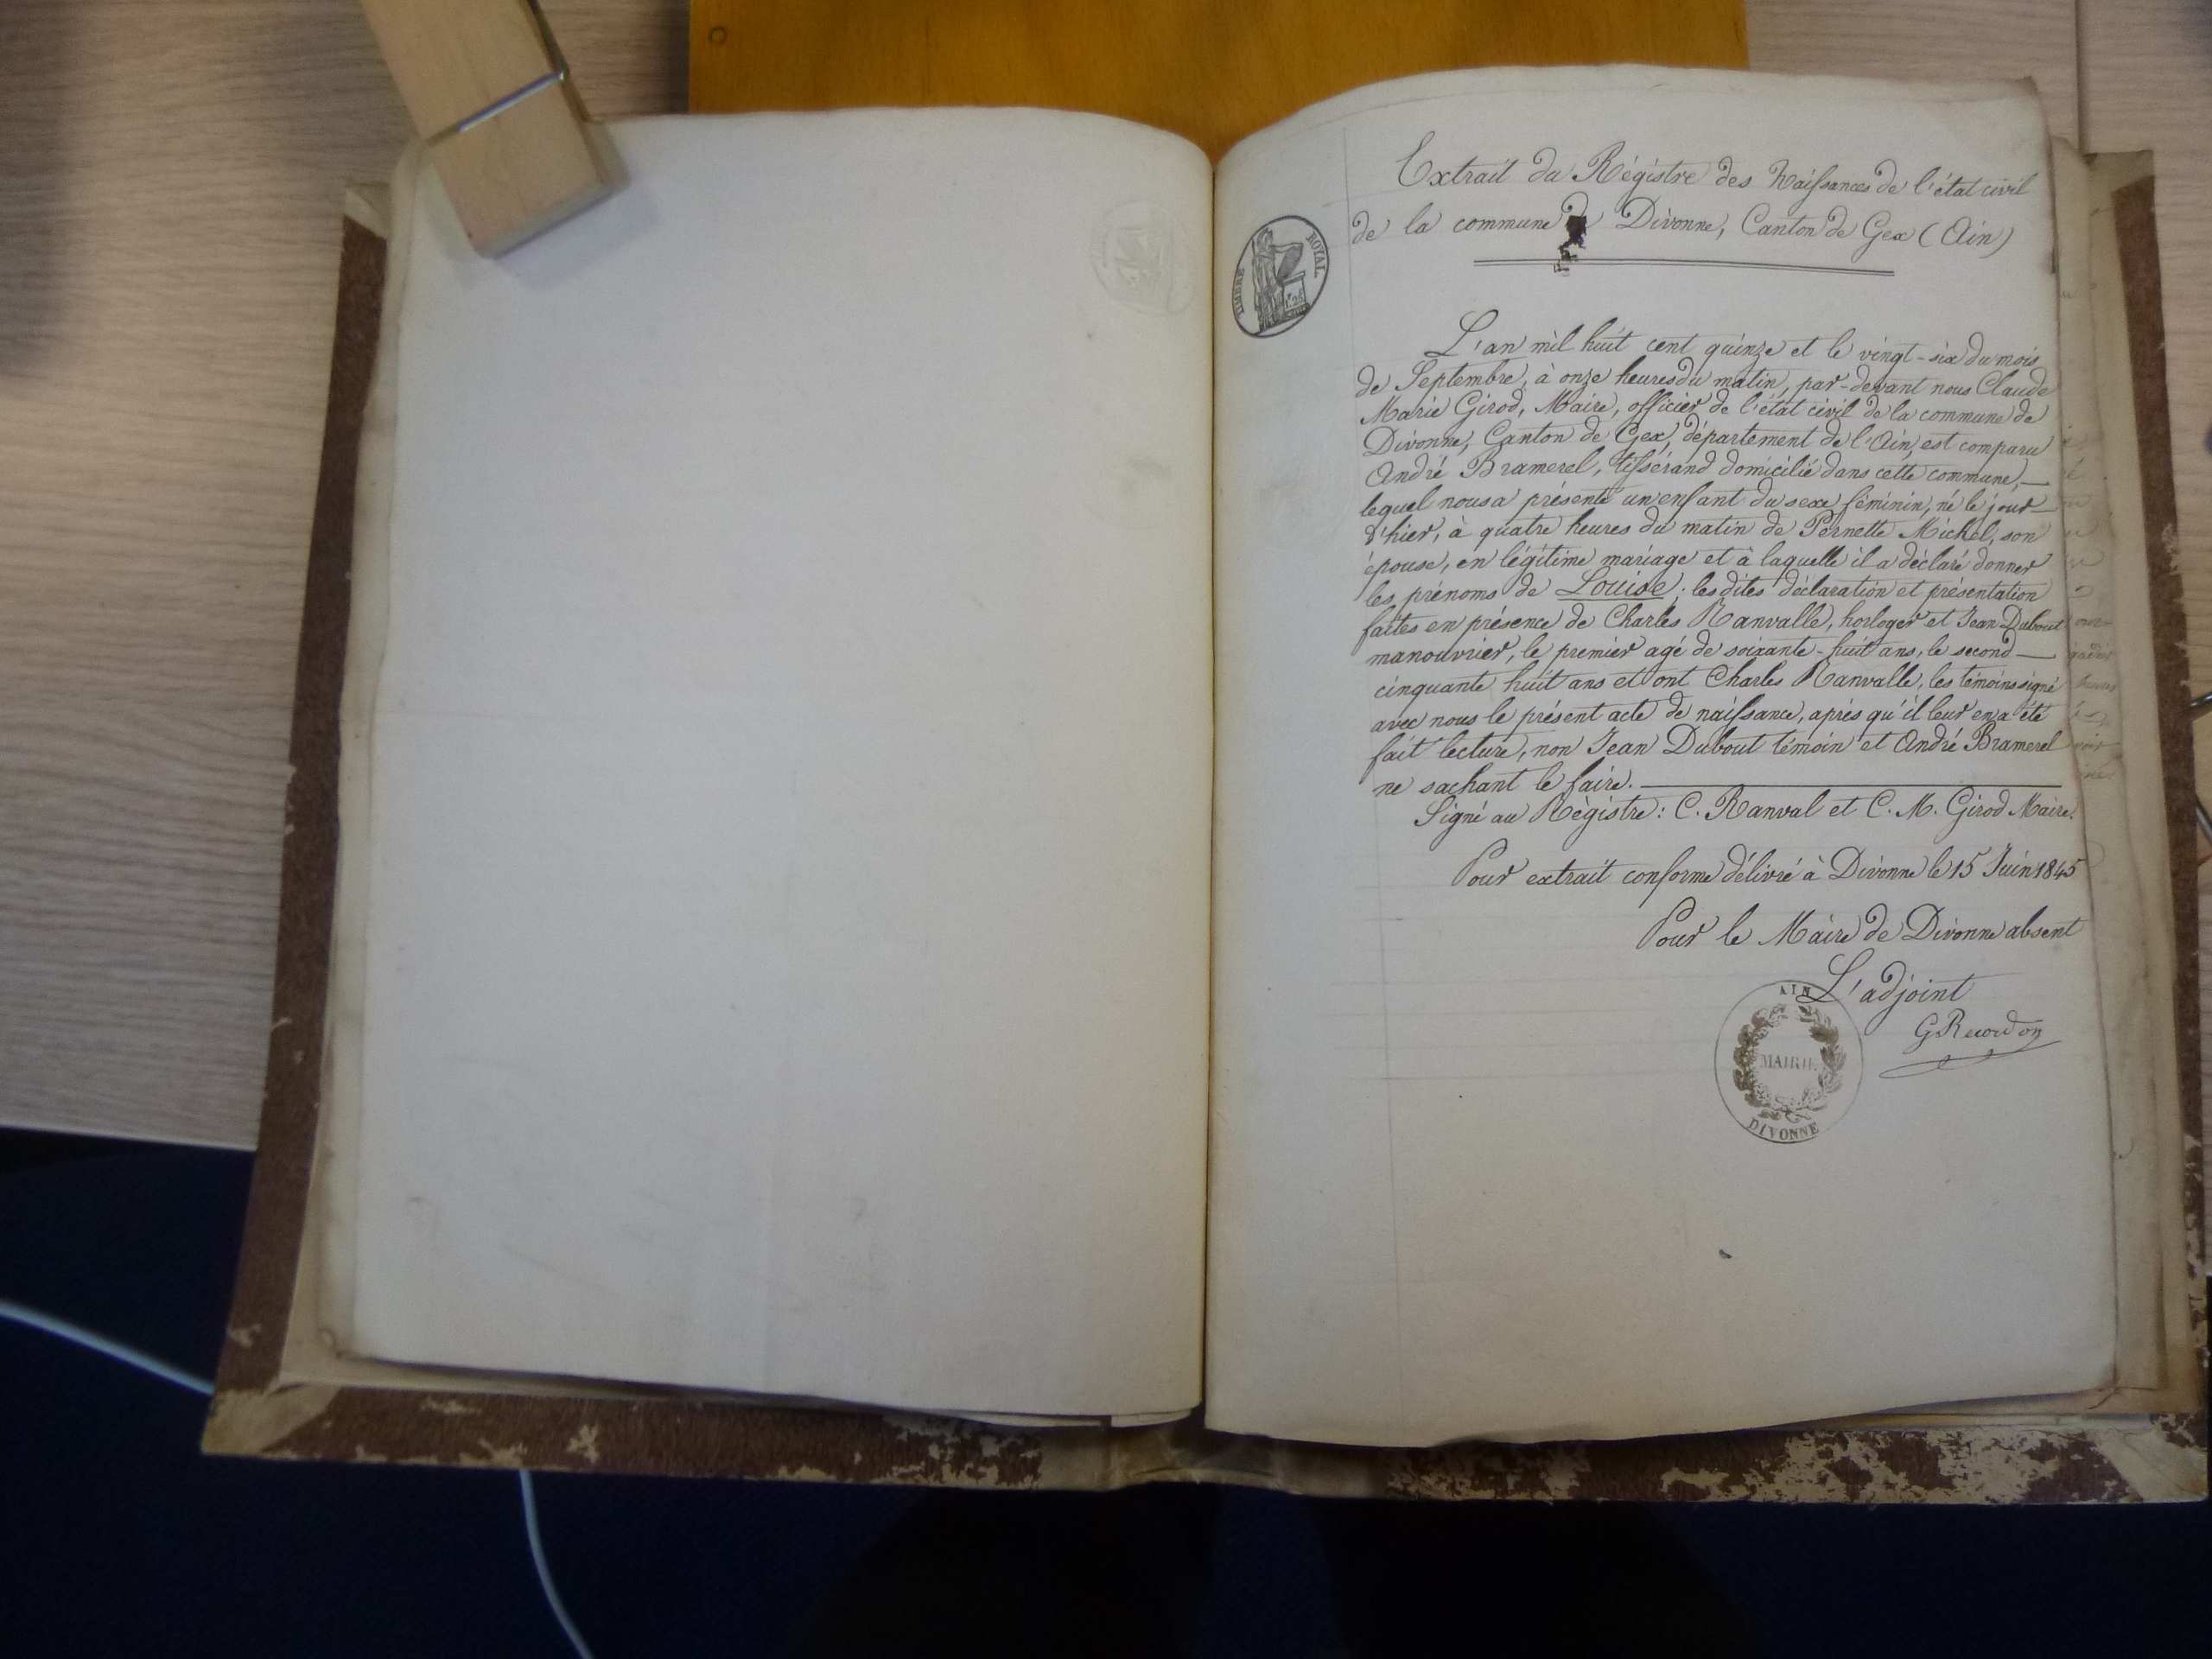 Extrait du Régistre des Naissances de l'état civil
de la commune de Divonne, Canton de Gex (Ain)
TIMBRE ROYAL
L'an mil huit cent quinze et le vingt-six du mois
de Septembre, à onze heures du matin, par-devant nous Claude
Marie Girod, Maire, officier de l'état civil de la commune de
Divonne, Canton de Gex, département de l'Ain, est comparu
André Bramerel, tissérand domicilié dans cette commune,—
lequel nous a présenté un enfant du sexe féminin, né le jour
d'hier, à quatre heures du matin de Pernette Michel, son
épouse, en légitime mariage et à laquelle il a déclaré donner
les prénoms de Louise; les dites déclaration et présentation
faites en présence de Charles Ranvalle, horloger et Jean Dubout
manouvrier, le premier agé de soixante-huit ans, le second —
cinquante huit ans et ont Charles Ranvalle, les témoins signé
avec nous le présent acte de naissance, après qu'il leur en a été
fait lecture, non Jean Dubout témoin et André Bramerel
ne sachant le faire. —
Signé au Régistre: C. Ranval et C. M. Girod Maire.
Pour extrait conforme délivré à Divonne le 15 Juin 1845
Pour le Maire de Divonne absent
L'adjoint
G Recordon
AIN
MAIRIE
DIVONNE